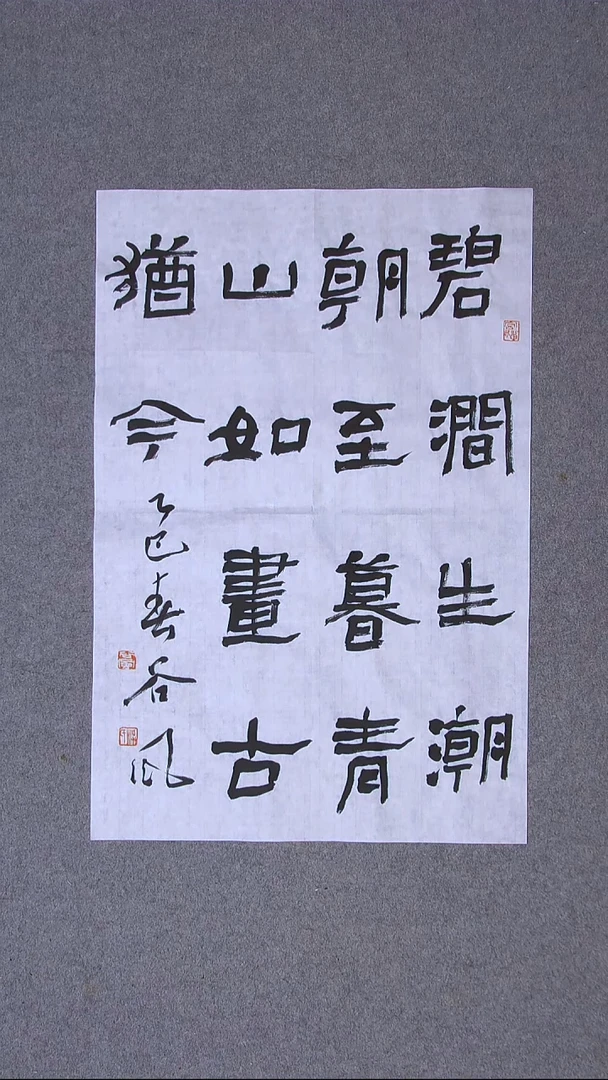 碧澗生潮
朝至暮青
山如畫古
猶今
乙巳春谷風